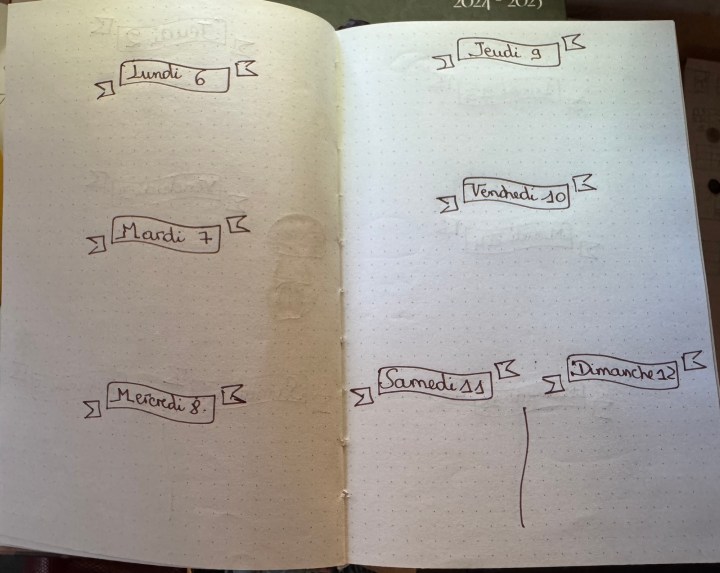 2024 - 2025
Lundi 6
Mardi 7
Mercredi 8.
Jeudi 9
Vendredi 10
Samedi 11
Dimanche 12